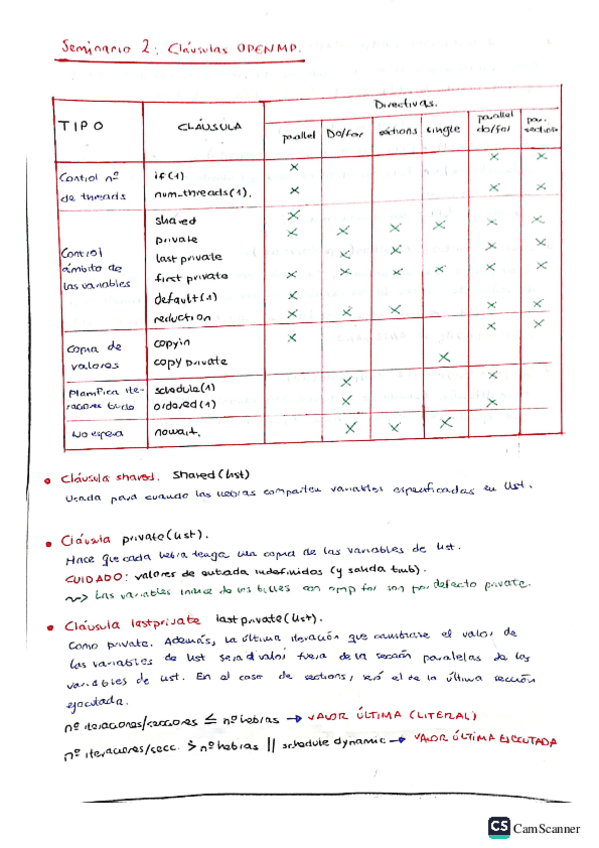 Seminario 2: Cláusulas OPENMP.
Directivas.
TIPO CLÁUSULA parallel Do/for sections single parallel do/for par. sections
Control nº de threads
if(1) X X X
num_threads(1). X X X
Control ámbito de las variables
shared X X X
private X X X X X X
last private X X X X
first private X X X X X X
default(1) X
reduction X X X X X
Copia de valores
copyin X X X
copy private X
Planifica iteraciones bucle
schedule(1) X X
ordered(1) X X
No espera
nowait. X X X
• Cláusula shared. Shared(list)
Usada para cuando las hebras comparten variables especificadas en list.
• Cláusula private(list).
Hace que cada hebra tenga una copia de las variables de list.
CUIDADO: valores de entrada indefinidos (y salida tmb).
~> Las variables índice de los bucles con omp for son por defecto private.
• Cláusula lastprivate lastprivate(list).
Como private. Además, la última iteración que el valor de
las variables de list será el valor fuera de la sección paralelas de las
variables de list. En el caso de sections, será el de la última sección
ejecutada.
nº iteraciones/secciones ≤ nº hebras → VALOR ÚLTIMA (LITERAL)
nº iteraciones/secc. > nº hebras || schedule dynamic → VALOR ÚLTIMA EJECUTADA
CS CamScanner